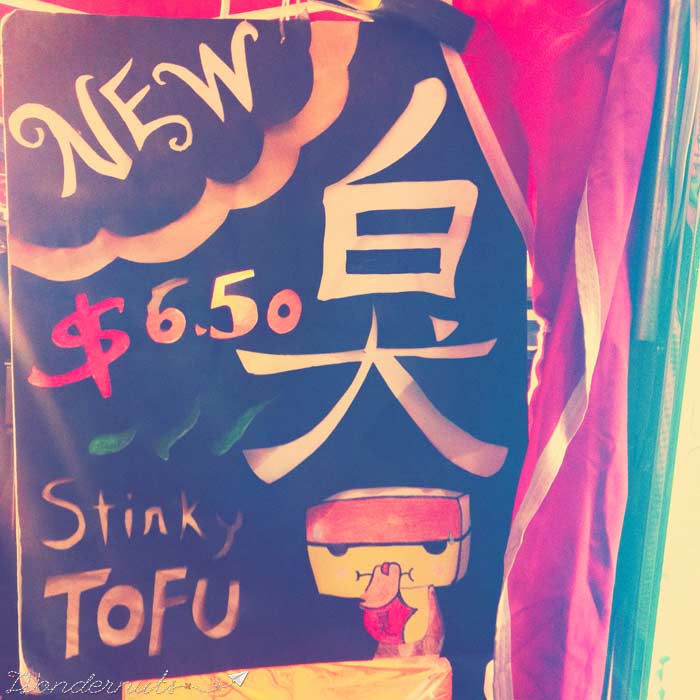 NEW
臭
$6.50
Stinky
TOFU
Wondernuts